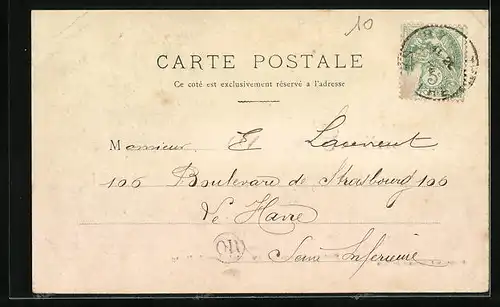 10
CARTE POSTALE
Ce coté est exclusivement réservé a l'adresse
Monsieur E Laurent
106 Boulevard de Strasbourg 106
Le Havre
Seine Inferieure